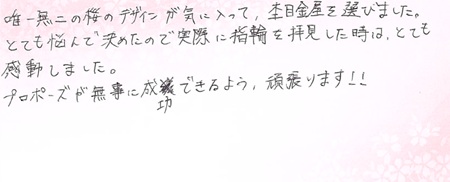 唯一無二の桜のデザインが気に入って、杢目金屋を選びました。
とても悩んで決めたので実際に指輪を拝見した時は、とても
感動しました。
プロポーズが無事に成功できるよう、頑張ります!!